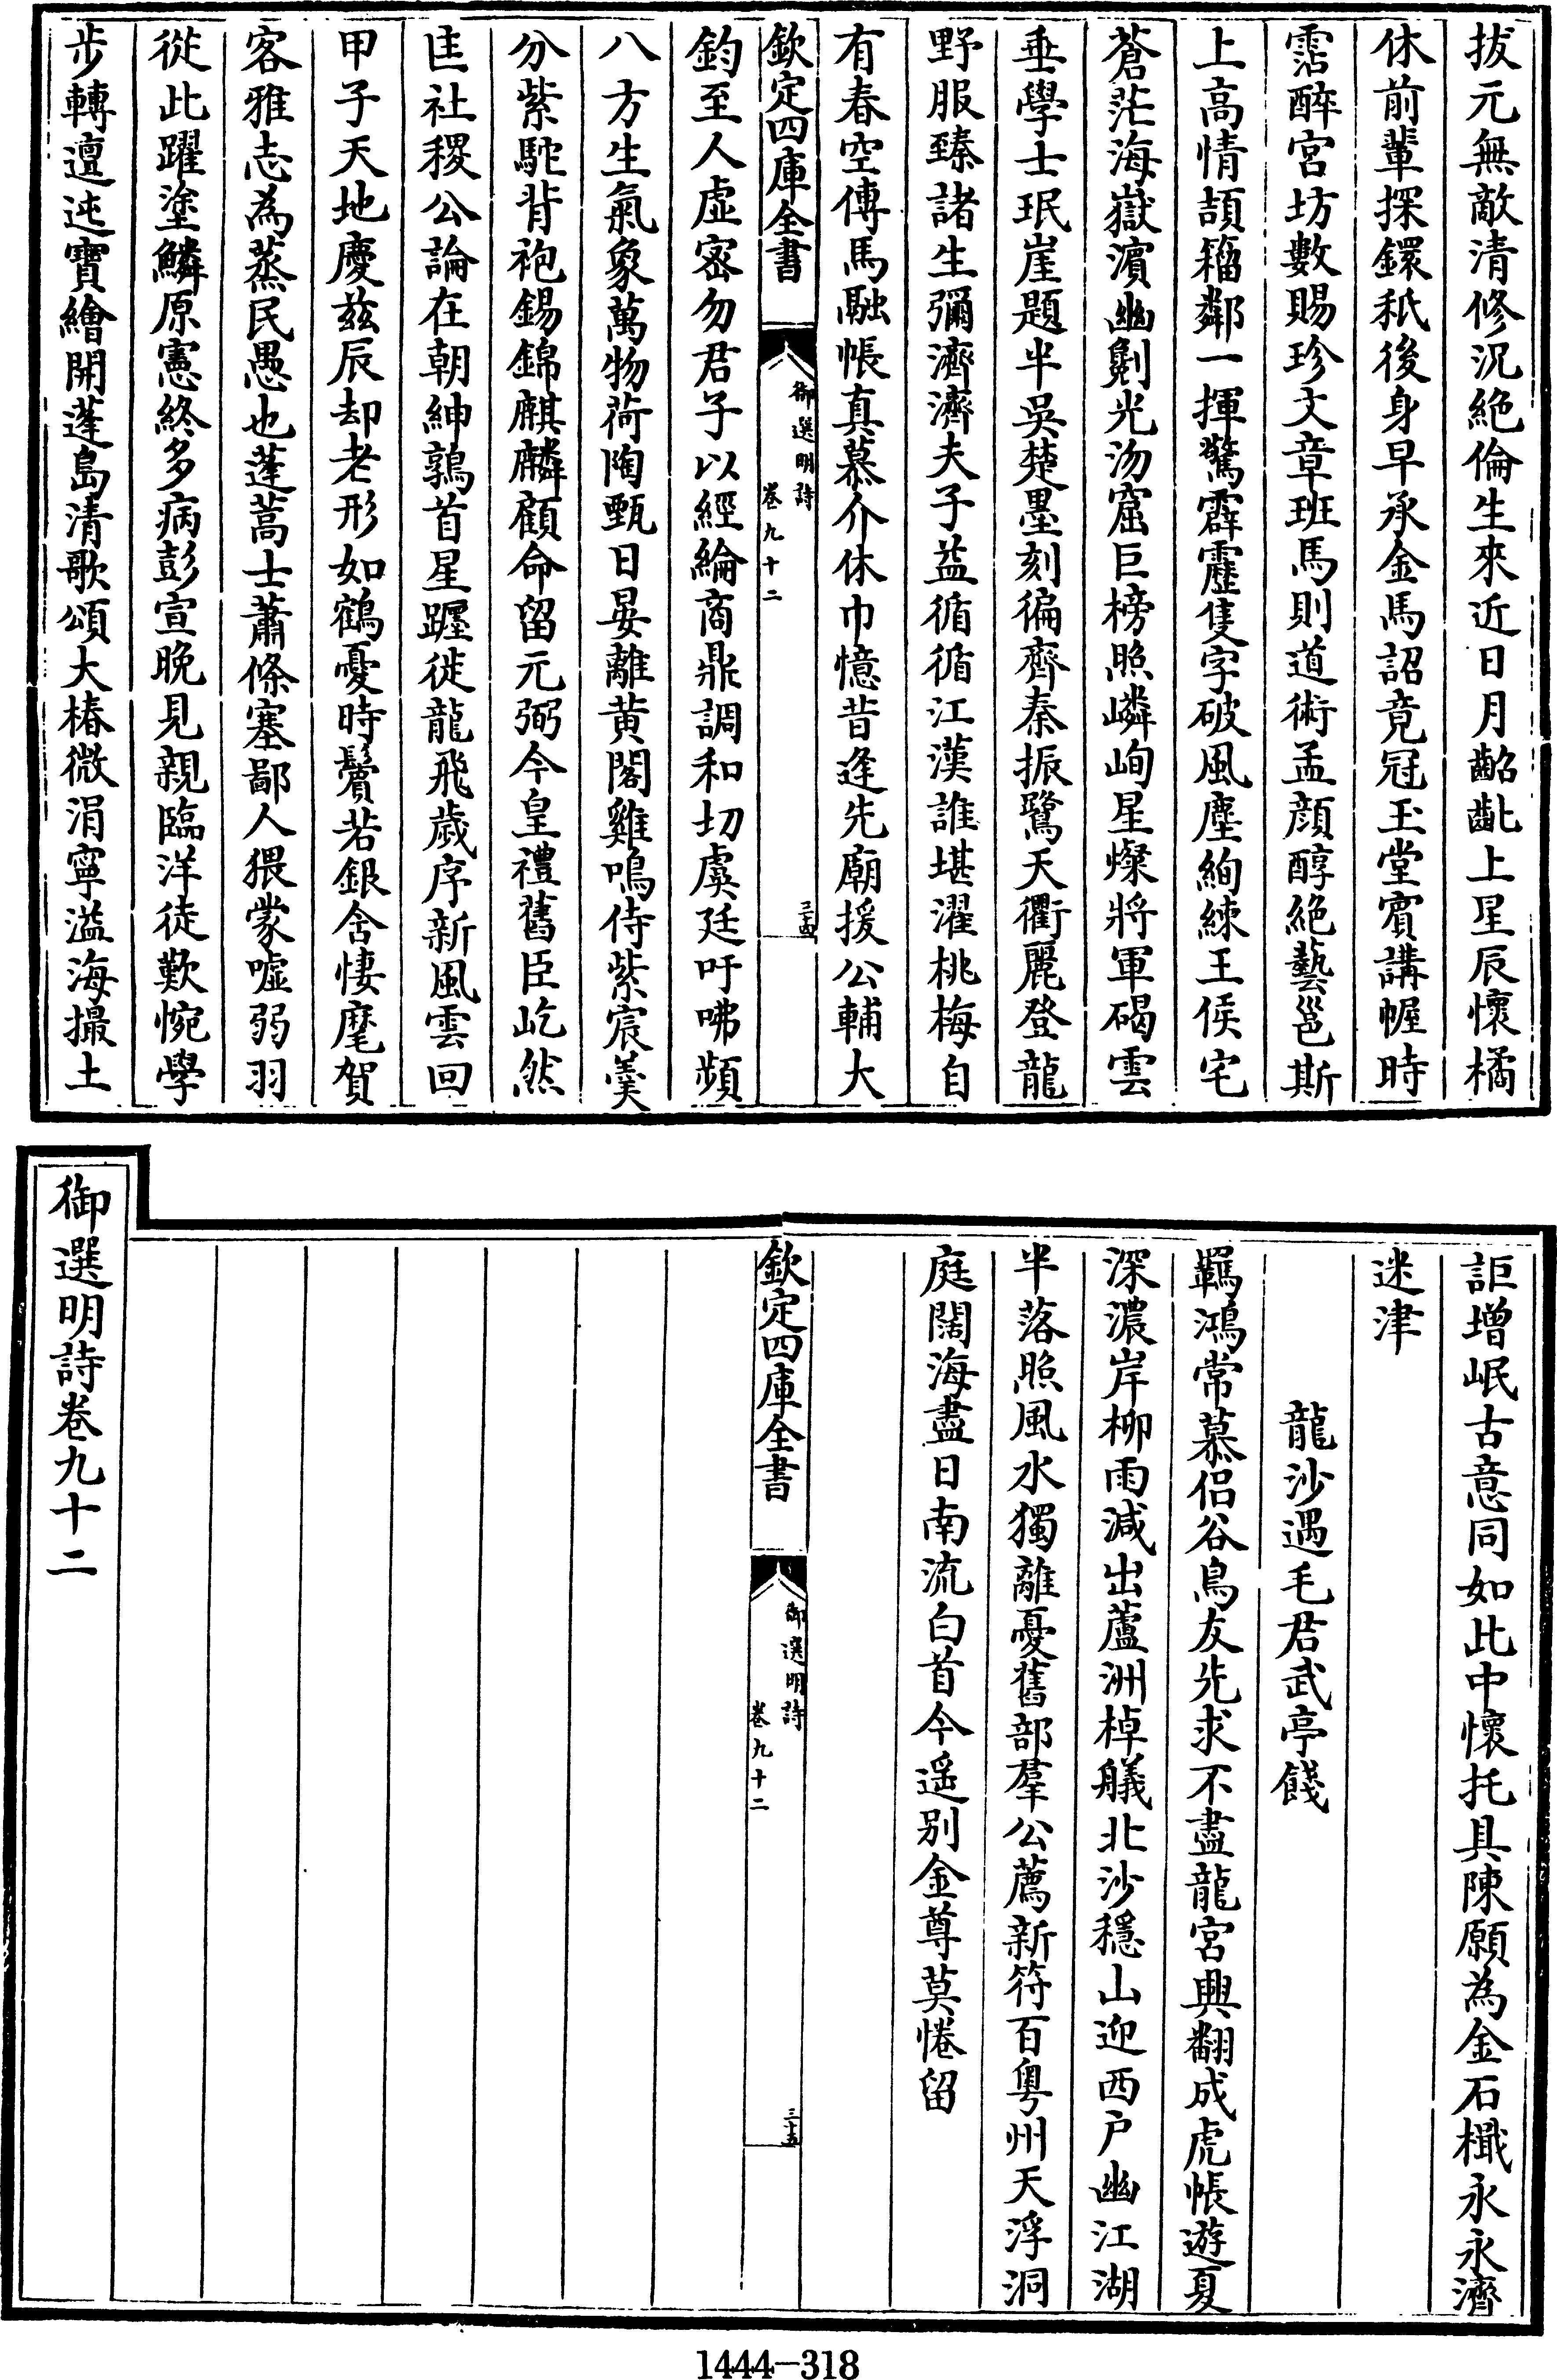 拔元無敵清修況絶倫生來近日月齠齔上星辰懷橘
休前輩探鐶秖後身早承金馬詔竟冠玉堂賓講幄時
霑醉宮坊數賜珍文章班馬則道術孟顔醇絶藝邕斯
上高情頡籀鄰一揮驚霹靂隻字破風塵絢綀王侯宅
蒼茫海嶽濱幽剜光沕窟巨榜照嶙峋星燦將軍碣雲
垂學士珉崖題半吳楚墨刻徧齊秦振鷺天衢麗登龍
野服臻諸生彌濟濟夫子益循循江漢誰堪濯桃梅自
有春空傳馬融帳真慕介休巾憶昔逢先廟援公輔大
欽定四庫全書
御選明詩
卷九十二
三十四
鈞至人虛宻勿君子以經綸商鼎調和切虞廷吁咈頻
八方生氣象萬物荷陶甄日晏離黄閣雞鳴侍紫宸羹
分紫駝背袍錫錦麒麟顧命留元弼今皇禮舊臣屹然
匡社稷公論在朝紳鶉首星躔徙龍飛歲序新風雲回
甲子天地慶兹辰却老形如鶴憂時鬢若銀含悽麾賀
客雅志為蒸民愚也蓬蒿士蕭條塞鄙人猥蒙噓弱羽
從此躍塗鱗原憲終多病彭宣晩見親臨洋徒歎惋學
步轉邅迍寶繪開蓬島清歌頌大椿微涓寧溢海撮土
詎增岷古意同如此中懷托具陳願為金石檝永永濟
迷津
龍沙遇毛君武亭餞
羈鴻常慕侣谷鳥友先求不盡龍宮興翻成虎帳遊夏
深濃岸柳雨減出蘆洲棹艤北沙穩山迎西户幽江湖
半落照風水獨離憂舊部羣公薦新符百粤州天浮洞
庭闊海盡日南流白首今遥别金尊莫惓留
欽定四庫全書
御選明詩
卷九十二
三十五
御選明詩卷九十二
1444-318